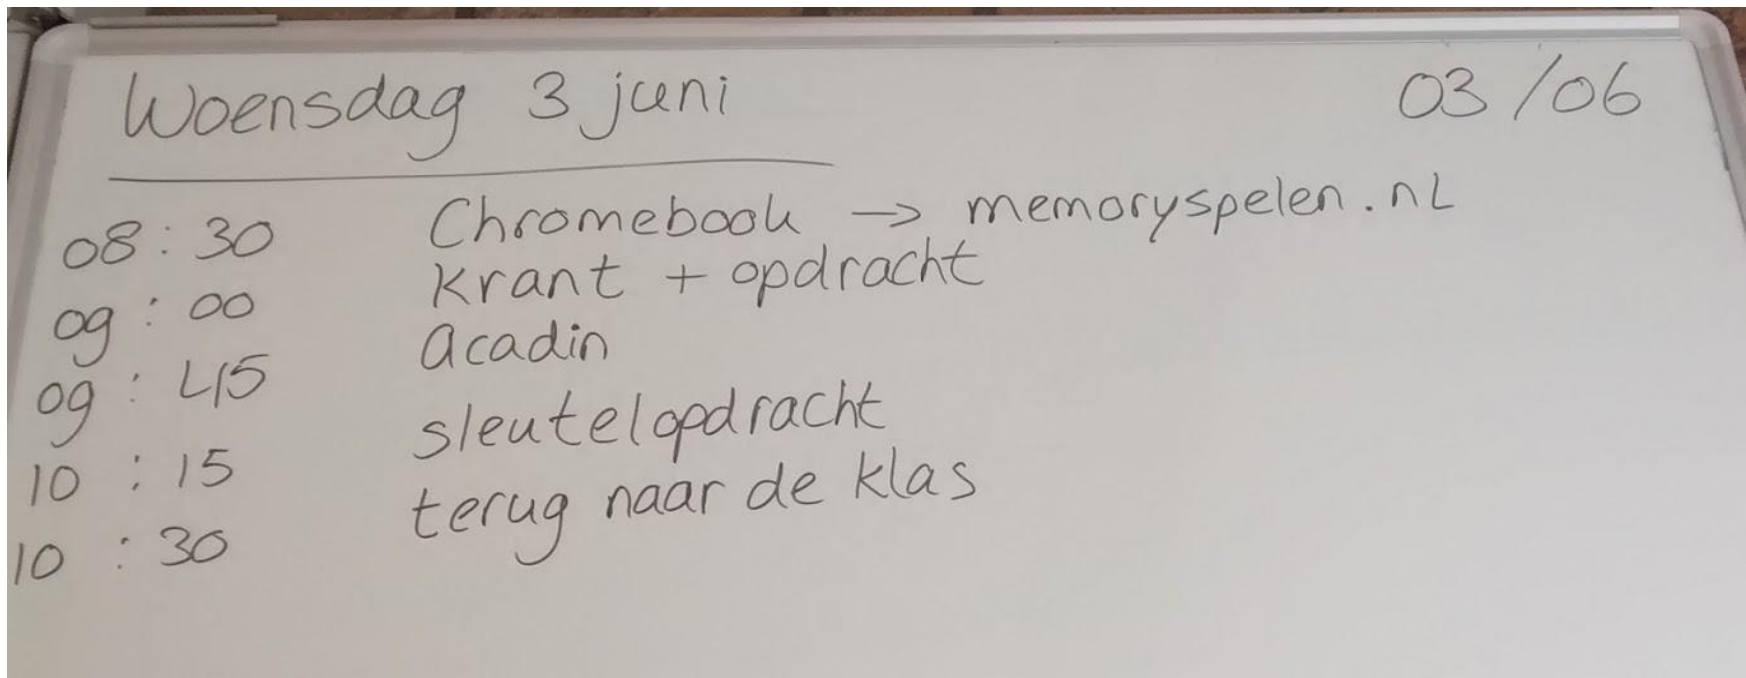 Woensdag 3 juni 03/06
08:30 Chromebook → memoryspelen.nl
09:00 Krant + opdracht
09:45 Acadin
10:15 sleutelopdracht
10:30 terug naar de klas